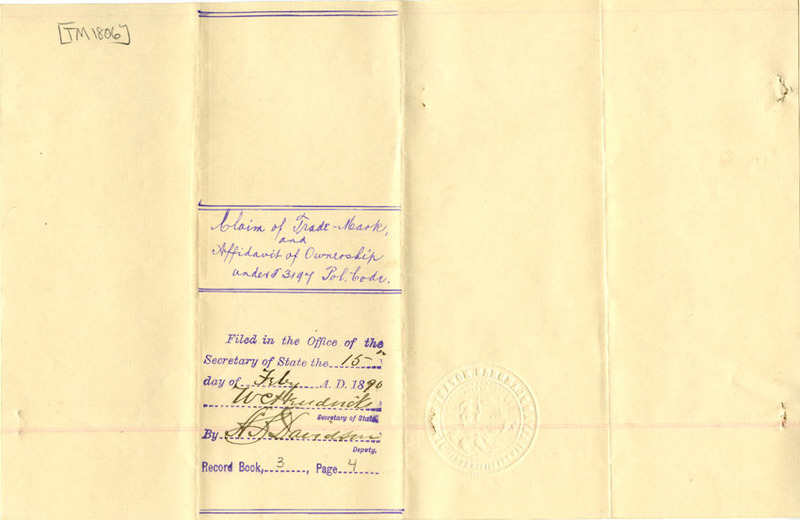 [TM1806]
Claim of Trade-Mark,
and
Affidavit of Ownership
under § 3197 Pol. Code.
Filed in the Office of the
Secretary of State the 15
day of Feby A. D. 1890
W C Hendricks
Secretary of State
By
Davidson
Deputy.
Record Book, 3, Page 4